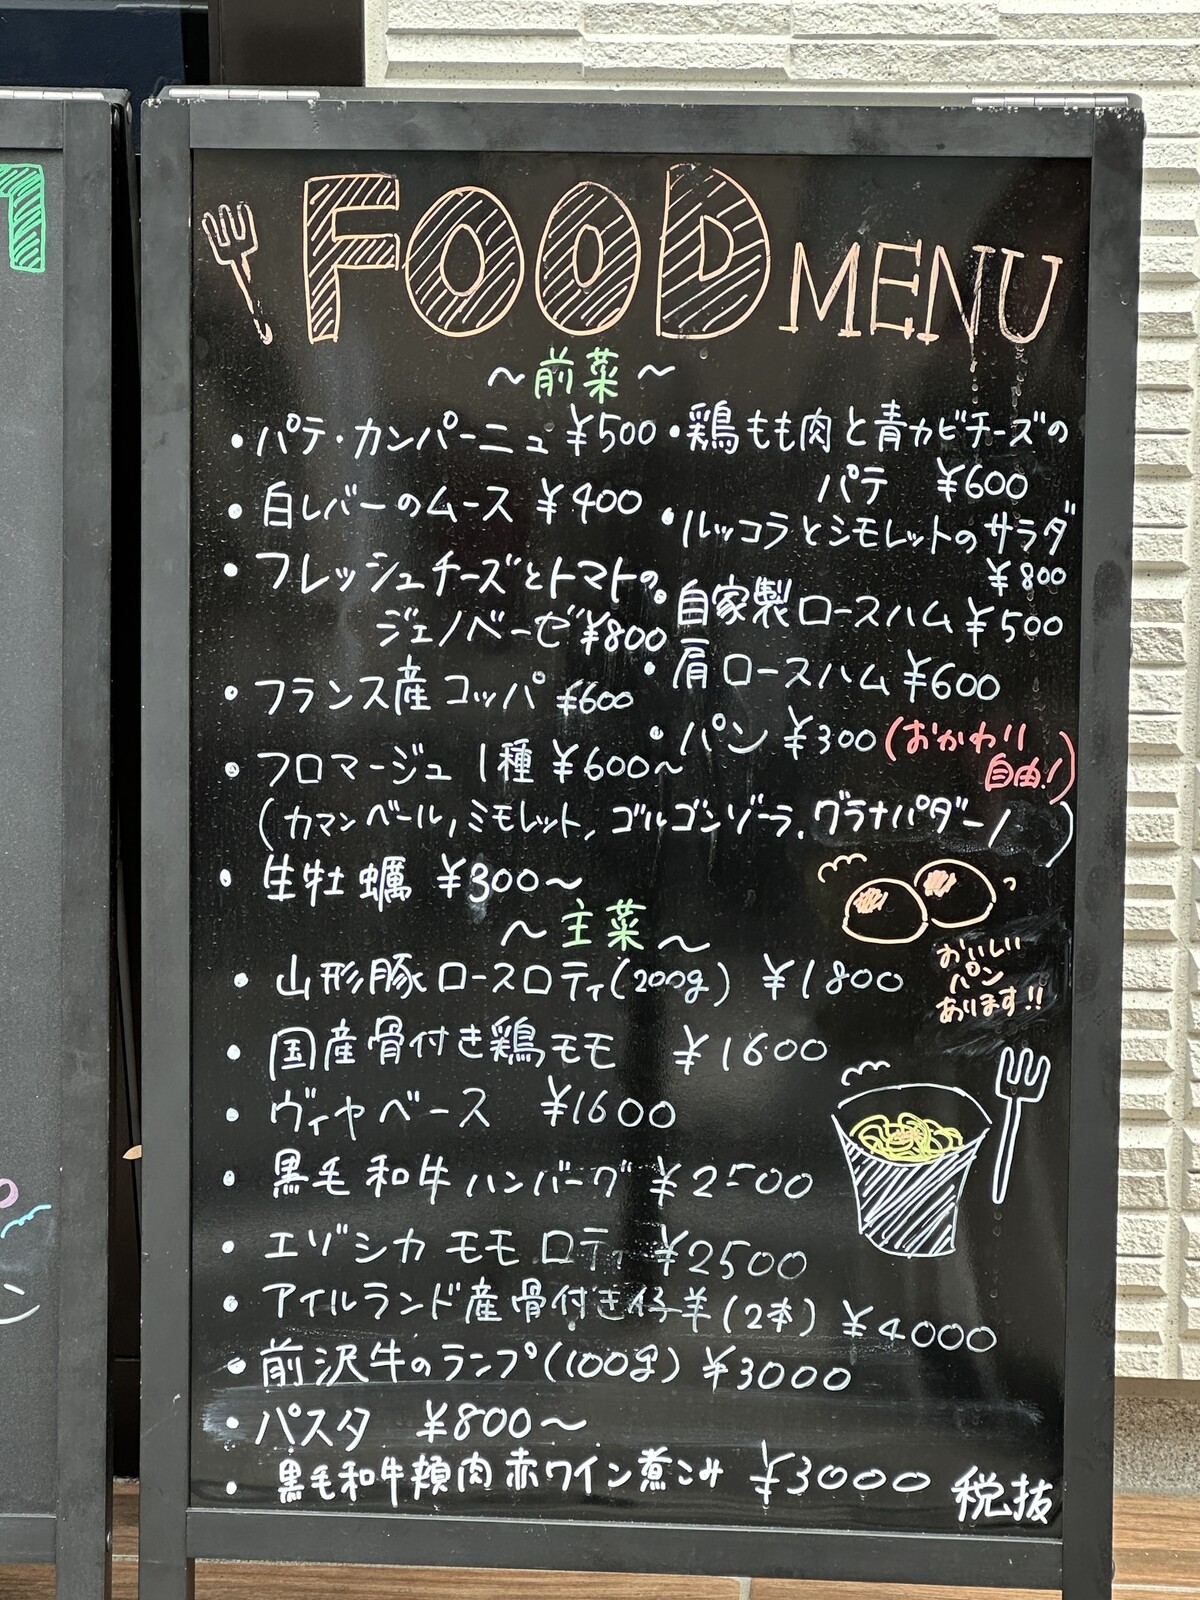 FOOD MENU
～前菜～
・パテ・カンパーニュ ¥500
・白レバーのムース ¥400
・フレッシュチーズとトマトの
ジェノベーゼ ¥800
・フランス産コッパ ¥600
・フロマージュ 1種 ¥600～
(カマンベール, ミモレット, ゴルゴンゾーラ, グラナパダーノ)
・生牡蠣 ¥300～
・鶏もも肉と青カビチーズの
パテ ¥600
・ルッコラとシモレットのサラダ
¥800
・自家製ロースハム ¥500
・肩ロースハム ¥600
・パン ¥300 (おかわり
自由!)
おいしい
パン
あります!!
～主菜～
・山形豚ロースロティ(200g) ¥1800
・国産骨付き鶏モモ ¥1600
・ヴィヤベース ¥1600
・黒毛和牛ハンバーグ ¥2500
・エゾシカ モモ ロティ ¥2500
・アイルランド産骨付き仔羊(2本) ¥4000
・前沢牛のランプ(100g) ¥3000
・パスタ ¥800～
・黒毛和牛頬肉赤ワイン煮こみ ¥3000
税抜